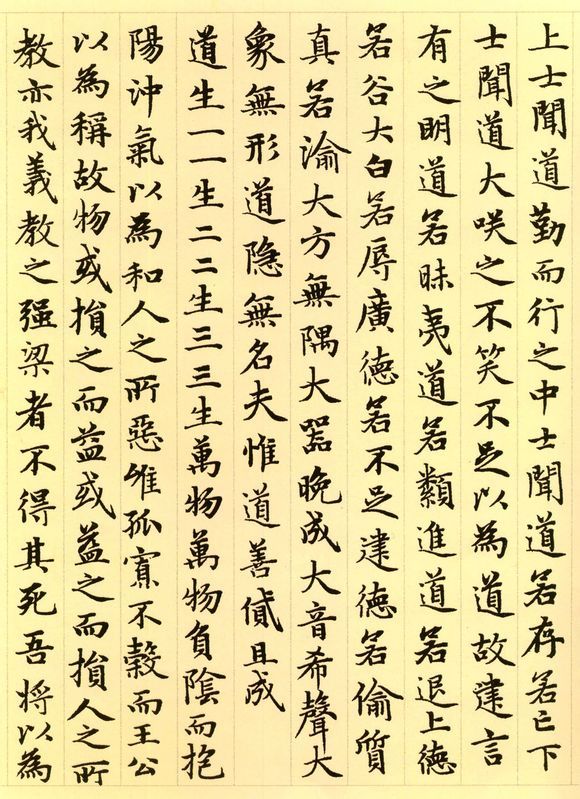 上士聞道勤而行之中士聞道若存若亡下
士聞道大咲之不笑不足以為道故建言
有之明道若昧夷道若類進道若退上德
若谷大白若辱廣德若不足建德若偷質
真若渝大方無隅大器晚成大音希聲大
象無形道隐無名夫惟道善貸且成
道生一一生二二生三三生萬物萬物負陰而抱
陽沖氣以為和人之所惡惟孤寡不穀而王公
以為稱故物或損之而益或益之而損人之所
教亦我義教之强梁者不得其死吾将以為